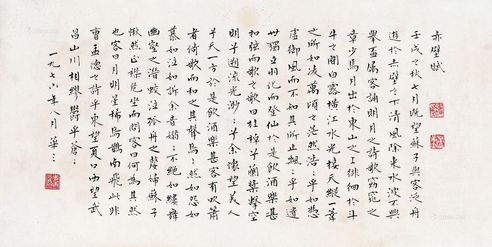 赤壁賦
壬戌之秋七月既望蘇子與客泛舟
遊於赤壁之下清風徐來水波不興
舉盃屬客誦明月之詩歌窈窕之
章少焉月出於東山之上徘徊於斗
牛之間白露橫江水光接天縱一葦
之所如凌萬頃之茫然浩々乎如憑
虛御風而不知其所止飄々乎如遺
世獨立羽化而登仙於是飲酒樂甚
扣弦而歌之歌曰桂棹兮蘭槳擊空
明兮溯流光渺々兮余懷望美人
兮天一方於是飲酒樂甚客有吹簫
者倚歌而和之其聲烏々然如怨如
慕如泣如訴余音嫋々不絕如縷舞
幽壑之潛蛟泣孤舟之嫠婦蘇子
愀然正襟危坐而問客曰何為其然
也客曰月明星稀烏鵲南飛此非
曹孟德之詩乎東望夏口西望武
昌山川相繆鬱乎蒼々
一九七六年八月